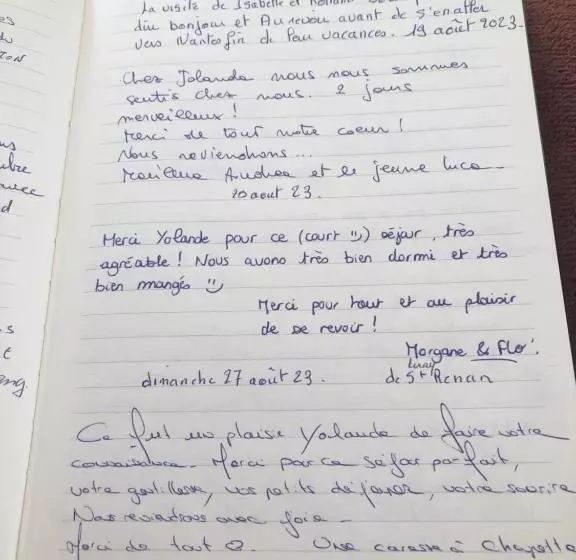 La visite de Isabelle et
dire bonjour et Au revoir avant de s'en aller
vers Nantes fin de leur vacances. 19 août 2023.
Chez Jolanda nous nous sommes
sentis chez nous. 2 jours
merveilleux!
Merci de tout notre coeur!
Nous reviendrons...
Andrea et le jeune Luca
20 aout 23.
Merci Yolande pour ce (court ")) séjour, très
agréable! Nous avons très bien dormi et très
bien mangés
Merci pour tout et au plaisir
de se revoir!
Morgane & Flo.
dimanche 27 août 23.
de St Renan
Ce fut un plaisir Yolande de faire votre
connaissance. Merci pour ce séjour parfait,
votre gentillesse, vos petits déjeuner, votre sourire
Nous reviendrons avec joie -
Merci de tout ♡. Une caresse à Chapella